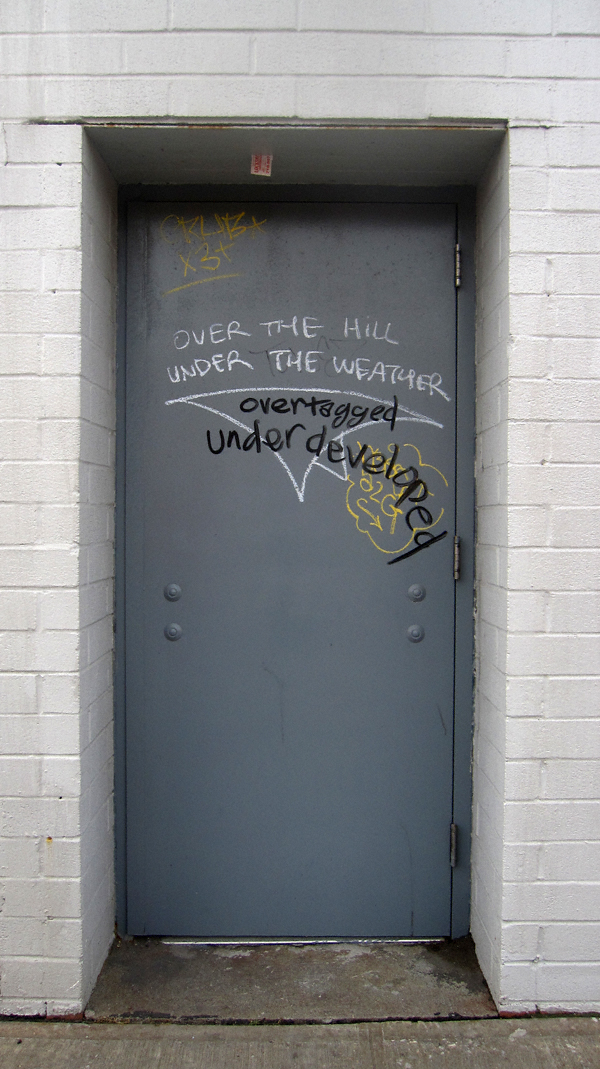 OVER THE HILL
UNDER THE WEATHER
overtagged
underdeveloped